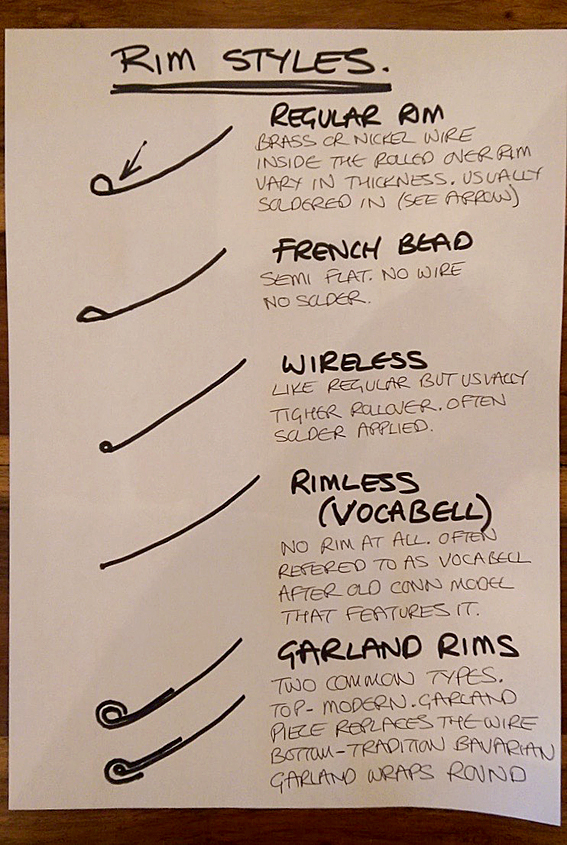 RIM STYLES.
REGULAR RIM
BRASS OR NICKEL WIRE
INSIDE THE ROLLED OVER RIM
VARY IN THICKNESS. USUALLY
SOLDERED IN (SEE ARROW)
FRENCH BEAD
SEMI FLAT. NO WIRE
NO SOLDER.
WIRELESS
LIKE REGULAR BUT USUALLY
TIGHER ROLLOVER. OFTEN
SOLDER APPLIED.
RIMLESS
(VOCABELL)
NO RIM AT ALL. OFTEN
REFERED TO AS VOCABELL
AFTER OLD CONN MODEL
THAT FEATURES IT.
GARLAND RIMS
TWO COMMON TYPES.
TOP- MODERN. GARLAND
PIECE REPLACES THE WIRE
BOTTOM-TRADITION BAVARIAN
GARLAND WRAPS ROUND